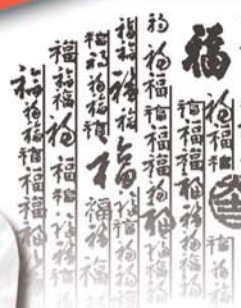 福
福福福福福
福福福福福福福
福福福福福福福福福
福福福福福福福福
福福福福福福福福
福福福福福福福福福
福福福福福福福